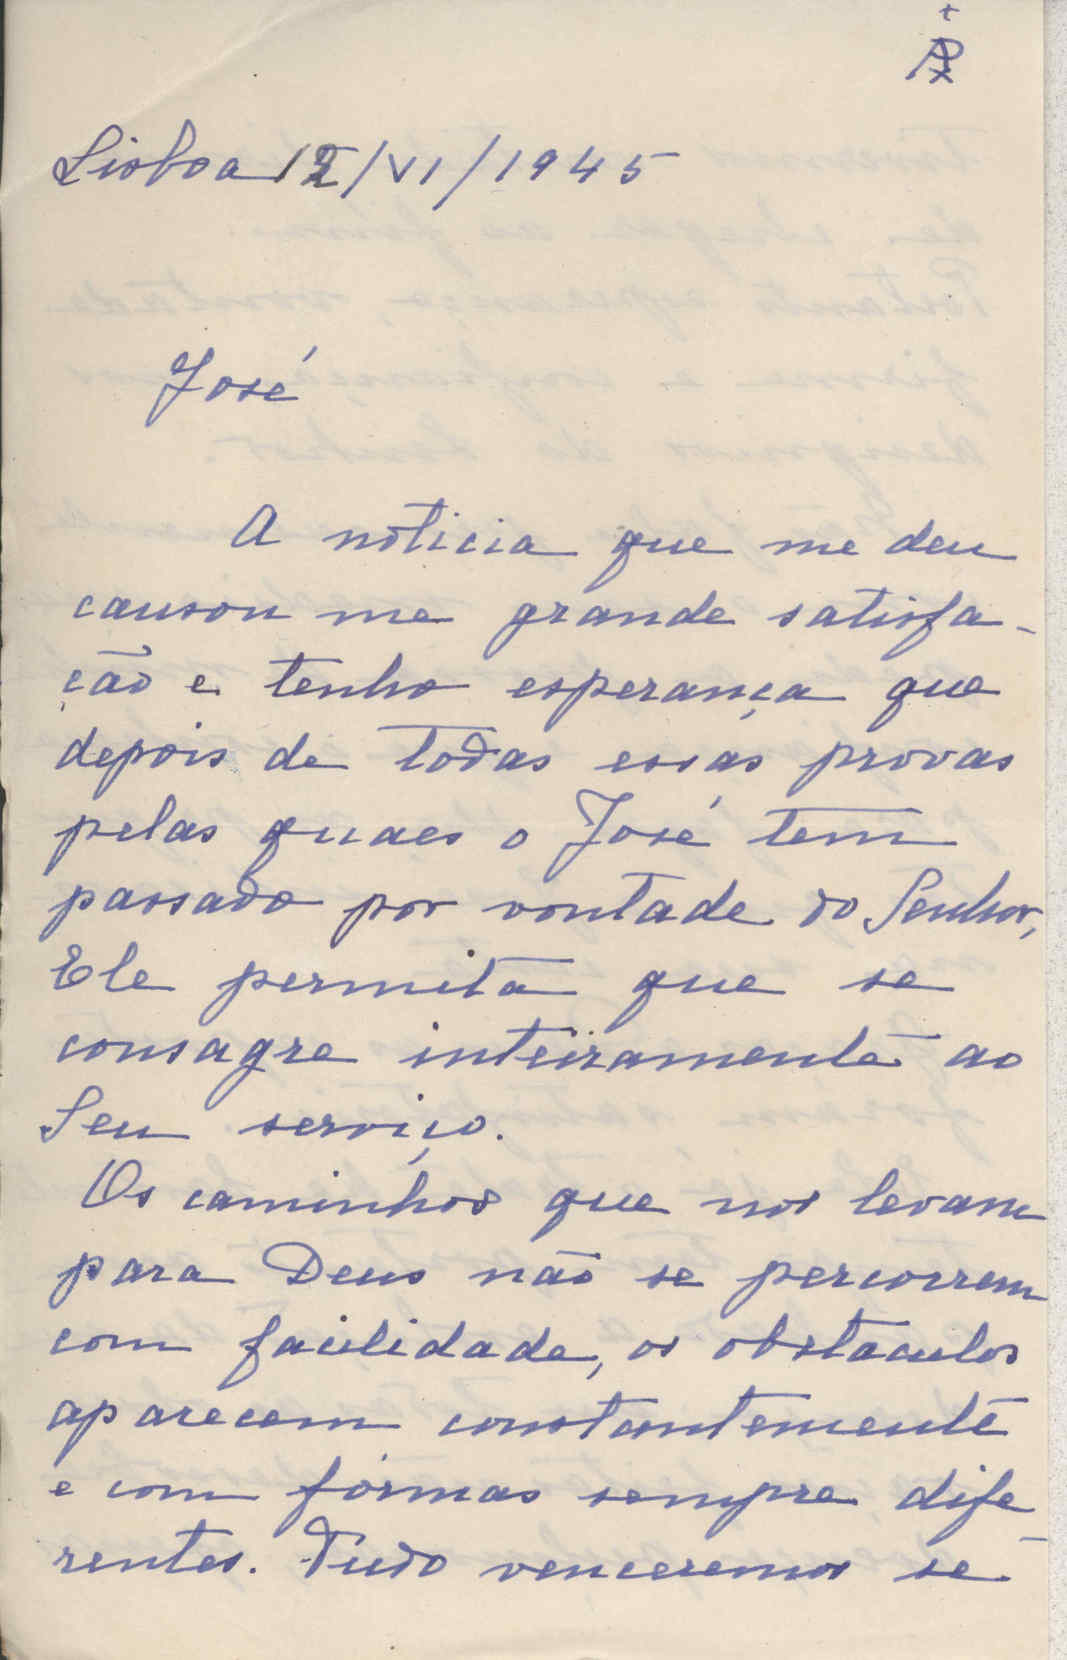 Lisboa 12/VI/1945
José
A noticia que me deu
causou me grande satisfa-
ção e tenho esperança que
depois de todas essas provas
pelas quaes o José tem
passado por vontade do Senhor,
Ele permita que se
consagre inteiramente ao
Seu serviço.
Os caminhos que nos levam
para Deus não se percorrem
com facilidade, os obstaculos
aparecem constantemente
e com fórmas sempre dife-
rentes. Tudo venceremos se